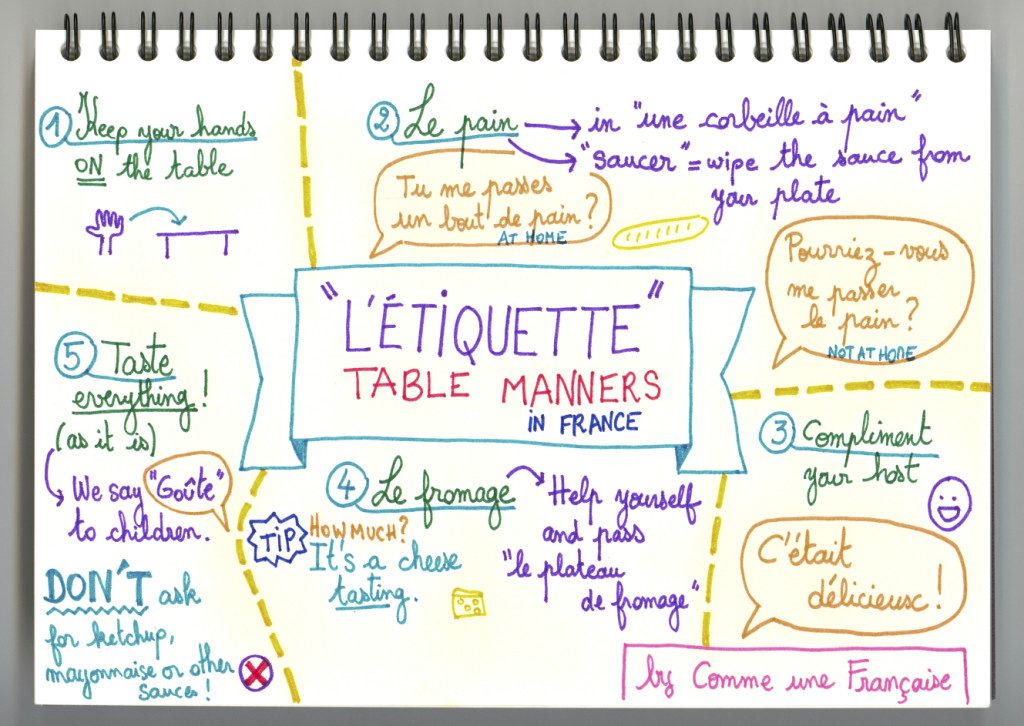 "L'ÉTIQUETTE"
TABLE MANNERS
IN FRANCE
1 Keep your hands
ON the table
2 Le pain
in "une corbeille à pain"
"saucer" = wipe the sauce from
your plate
Tu me passes
un bout de pain?
AT HOME
Pourriez-vous
me passer
le pain?
NOT AT HOME
3 Compliment
your host
C'était
délicieux!
4 Le fromage
Help yourself
and pass
"le plateau
de fromage"
TIP
HOW MUCH?
It's a cheese
tasting.
5 Taste
everything!
(as it is)
We say "Goûte"
to children.
DON'T ask
for ketchup,
mayonnaise or other
sauces!
by Comme une Française